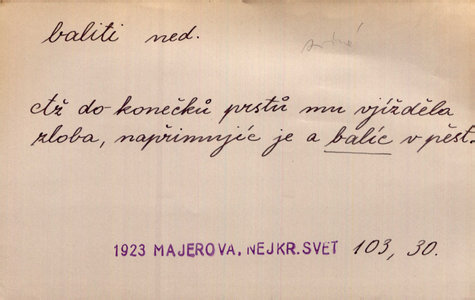 baliti ned.
Až do konečků prstů mu vjížděla
zloba, napřimujíc je a balíc v pěst.
1923 MAJEROVA, NEJKR. SVET 103, 30.